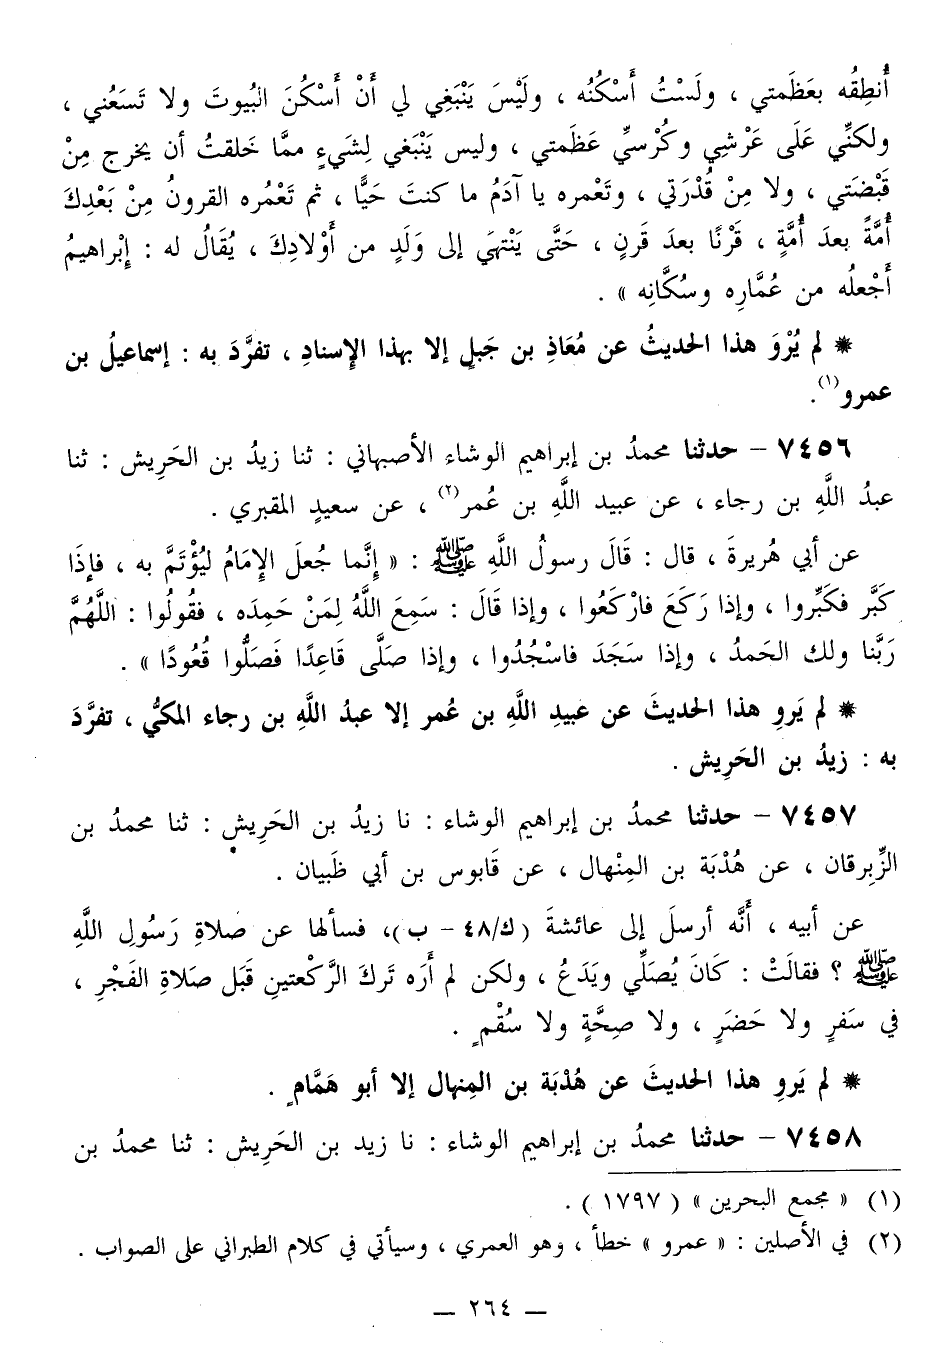 أُنطِقُه بعَظَمتي ، ولَسْتُ أَسْكُنُه ، ولَيْسَ يَنْبَغِي لي أَنْ أَسْكُنَ البُيوتَ ولا تَسَعُني ،
ولكنِّي عَلَى عَرْشِي وكُرْسيِّ عَظَمتي ، وليس يَنْبَغي لِشَيءٍ ممَّا خَلقتُ أن يخرج مِنْ
قَبْضَتي ، ولا مِنْ قُدْرَتي ، وتَعْمره يا آدَمُ ما كنتَ حَيًّا ، ثم تَعْمُره القرونُ مِنْ بَعْدِكَ
أُمَّةً بعدَ أُمَّةٍ ، قَرْنًا بعدَ قَرنٍ ، حَتَّى يَنْتهيَ إلى وَلَدٍ من أَوْلادِكَ ، يُقَالُ له : إبْراهيمُ
أَجْعلُه من عُمَّارِه وسُكَّانِه » .
* لم يُرْوَ هذا الحديثُ عن مُعَاذِ بن جَبلٍ إلا بهذا الإسنادِ ، تفرَّدَ به : إسماعيلُ بن
عمرو(١).
٧٤٥٦ – حدثنا محمدُ بن إبراهيم الوشاء الأصبهاني : ثنا زيدُ بن الحَرِيش : ثنا
عبدُ اللَّهِ بن رجاء ، عن عبيد اللَّهِ بن عُمر(٢) ، عن سعيدٍ المقبري .
عن أبي هُريرةَ ، قال : قَالَ رسولُ اللَّهِ ﷺ : « إنَّما جُعلَ الإمَامُ ليُؤْتَمَّ به ، فإذَا
كَبَّر فكَبِّروا ، وإذا رَكَعَ فارْكَعُوا ، وإذا قَالَ : سَمِعَ اللَّهُ لِمَنْ حَمِدَه ، فقُولُوا : اللَّهُمَّ
رَبَّنا ولك الحَمدُ ، وإذا سَجَدَ فاسْجُدُوا ، وإذا صَلَّى قَاعِدًا فَصَلُّوا قُعُودًا » .
* لم يَروِ هذا الحديثَ عن عبيدِ اللَّهِ بن عُمر إلا عبدُ اللَّهِ بن رجاء المكيُّ ، تفرَّدَ
به : زيدُ بن الحَرِيش .
٧٤٥٧ – حدثنا محمدُ بن إبراهيم الوشاء : نا زيدُ بن الحَرِيش : ثنا محمدُ بن
الزِّبرقان ، عن هُدْبَة بن المِنْهال ، عن قَابوس بن أبي ظَبيان .
عن أبيه ، أَنَّه أرسلَ إلى عائشةَ (ك/٤٨ – ب)، فسألها عن صَلاةِ رَسُولِ اللَّهِ
ﷺ ؟ فقالَتْ : كَانَ يُصَلِّي ويَدَعُ ، ولكن لم أَرَه تَركَ الرَّكْعتينِ قَبَل صَلاةِ الفَجْرِ ،
في سَفرٍ ولا حَضَرٍ ، ولا صِحَّةٍ ولا سُقْمٍ .
* لم يَروِ هذا الحديثَ عن هُدْبَة بن المِنهال إلا أبو هَمَّامٍ .
٧٤٥٨ – حدثنا محمدُ بن إبراهيم الوشاء : نا زيد بن الحَرِيش : ثنا محمدُ بن
(١) « مجمع البحرين » ( ١٧٩٧ ) .
(٢) في الأصلين : « عمرو » خطأ ، وهو العمري ، وسيأتي في كلام الطبراني على الصواب .
— ٢٦٤ —